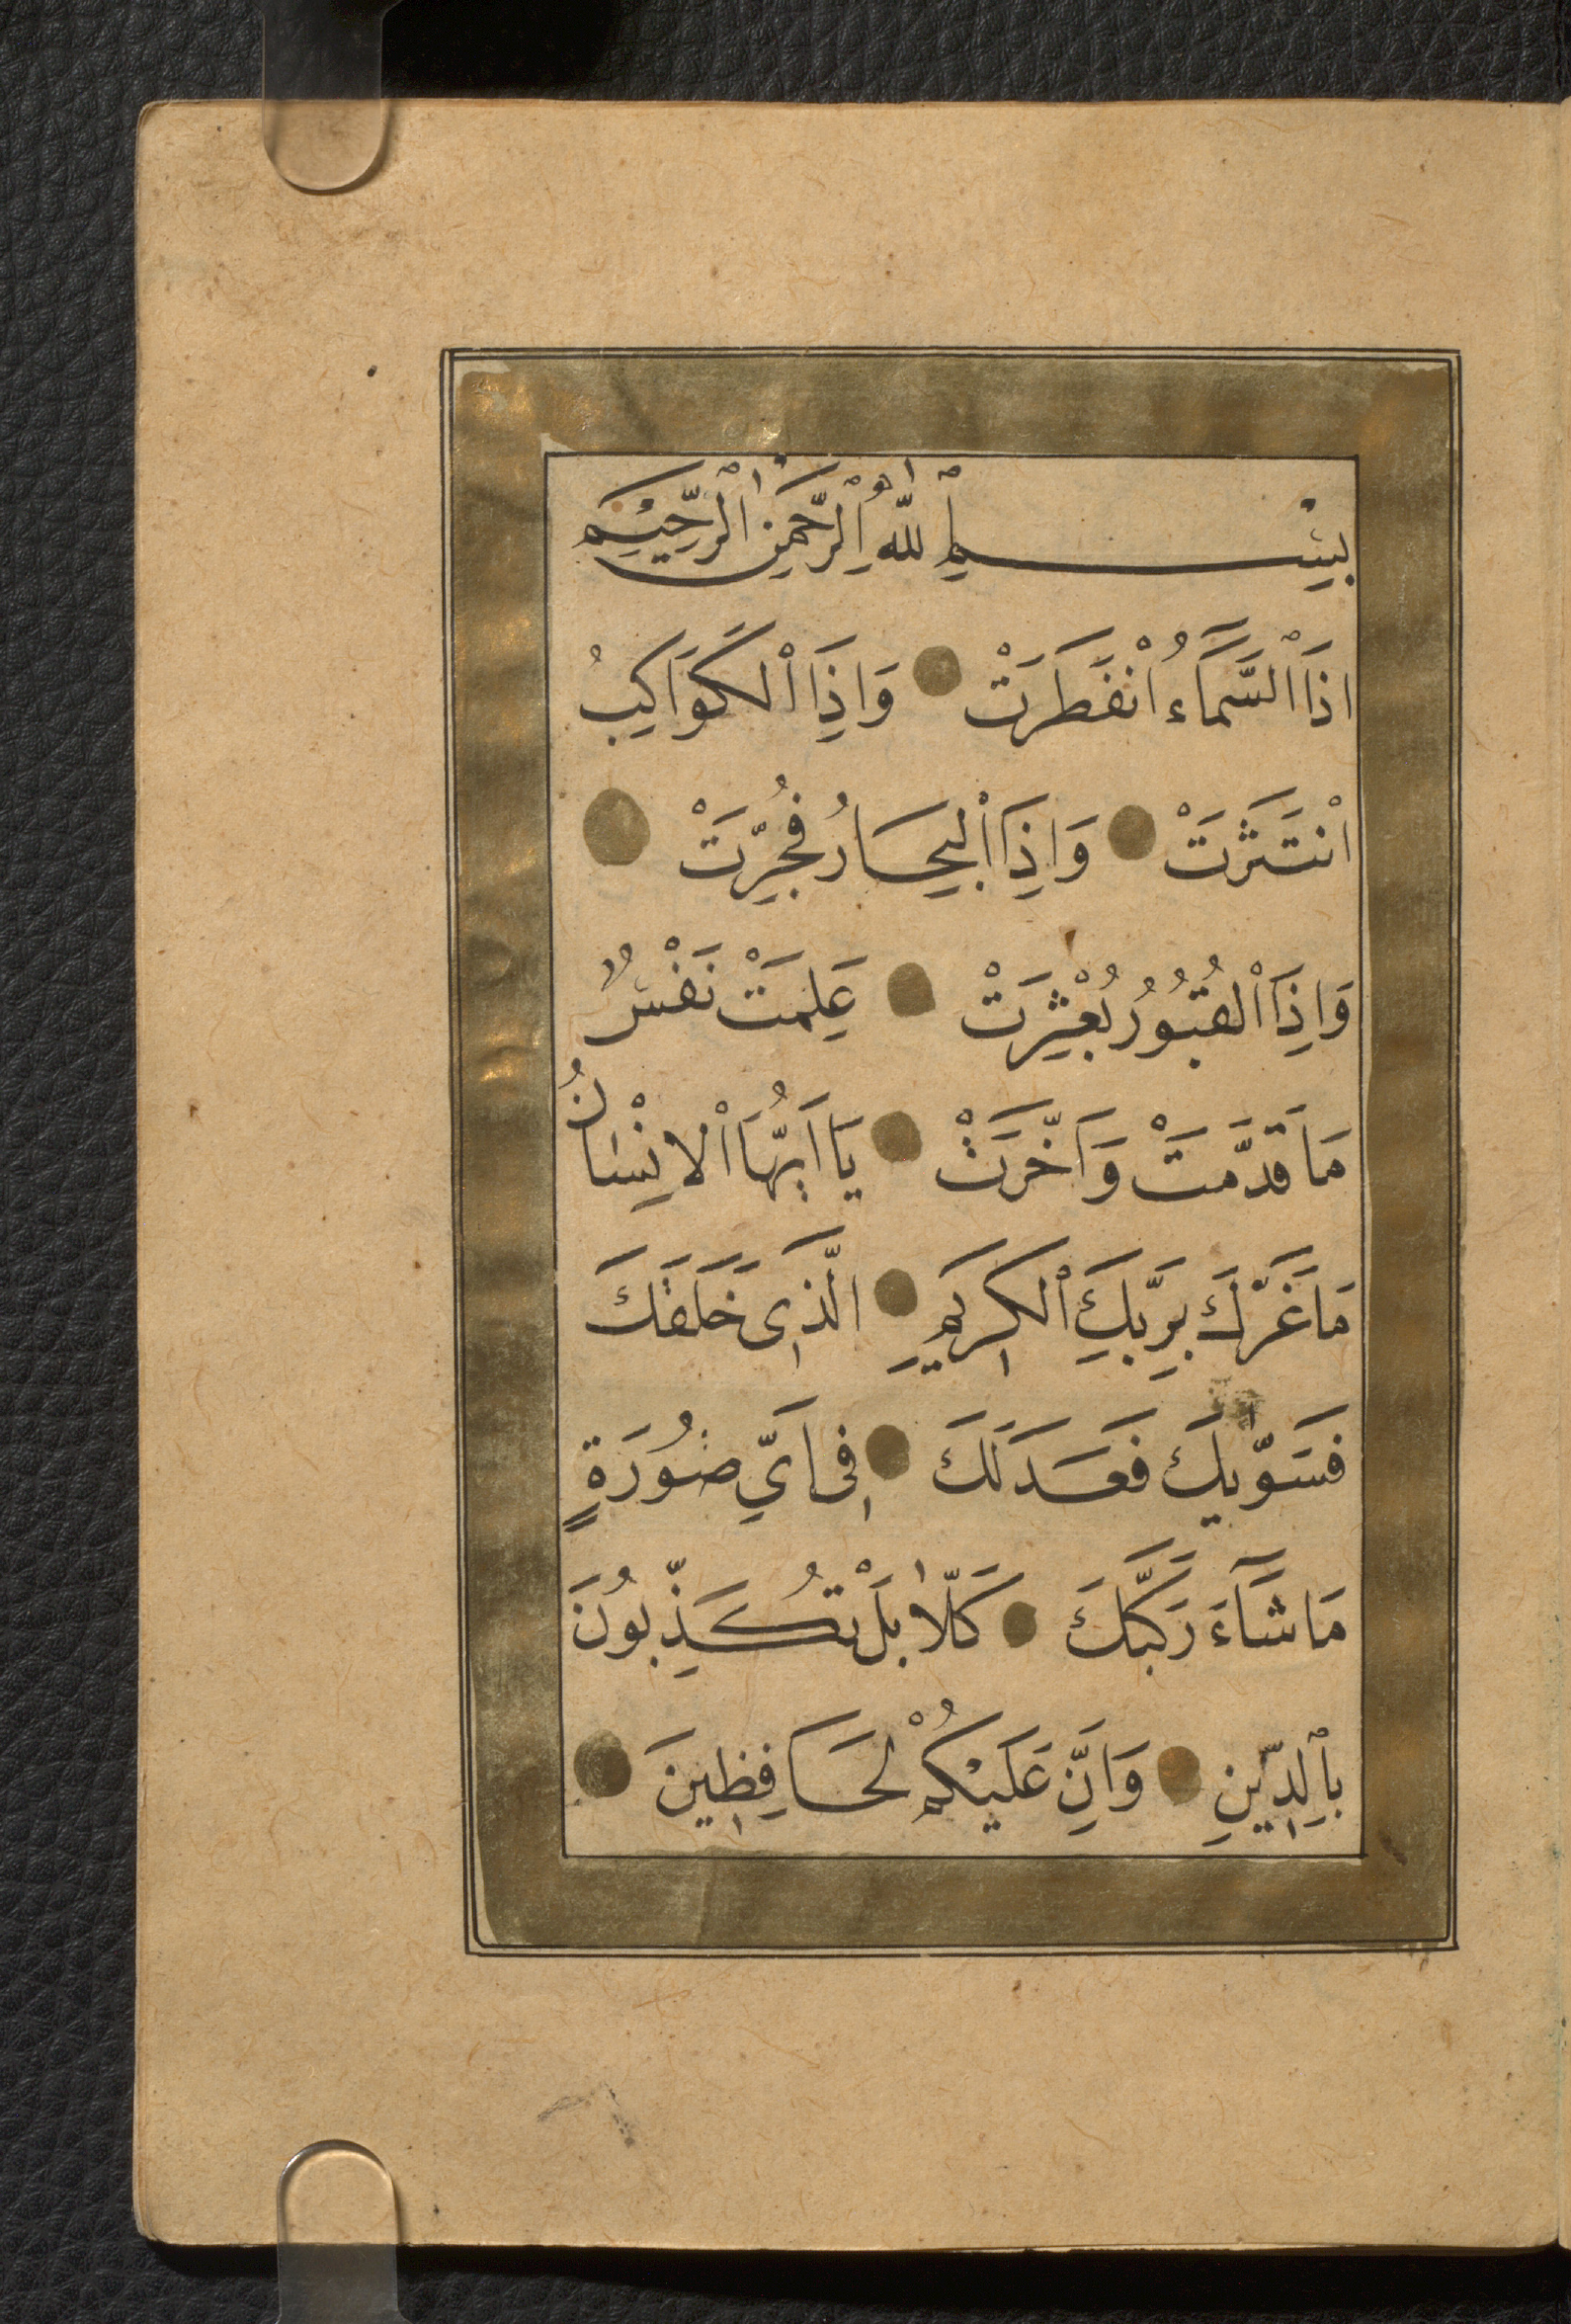 بِسْمِ اللّٰهِ الرَّحْمٰنِ الرَّحِيْمِ
اذَا السَّمَآءُ انْفَطَرَتْ وَاِذَا الْكَوَاكِبُ
انْتَثَرَتْ وَاِذَا الْبِحَارُ فُجِّرَتْ
وَاِذَا الْقُبُوُرُ بُعْثِرَتْ عَلِمَتْ نَفْسٌ
مَا قَدَّمَتْ وَاَخَّرَتْ يَا اَيُّهَا الْاِنْسَانُ
مَا غَرَّكَ بِرَبِّكَ الْكَرٖيمِ الَّذٖى خَلَقَكَ
فَسَوّٰيكَ فَعَدَلَكَ فٖى اَيِّ صُورَةٍ
مَا شَآءَ رَكَّبَكَ كَلّٰا بَلْ تُكَذِّبُونَ
بِالدّٖينِ وَاِنَّ عَلَيْكُمْ لَحَافِظٖينَ